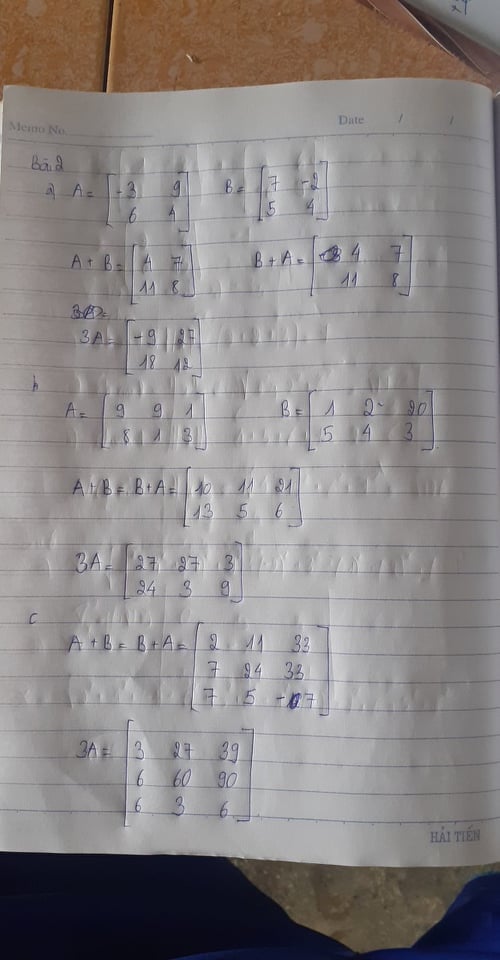 Memo No. Date / /
Bài 2
a) A = [-3 9 B = [7 -2
6 4] 5 4]
A + B = [4 7 B + A = [4 7
11 8] 11 8]
3A = [-9 27
18 12]
b
A = [9 9 1 B = [1 2 20
8 1 3] 5 4 3]
A + B = B + A = [10 11 21
13 5 6]
3A = [27 27 3
24 3 9]
c
A + B = B + A = [2 11 33
7 24 33
7 5 -7]
3A = [3 27 39
6 60 90
6 3 6]
HẢI TIẾN